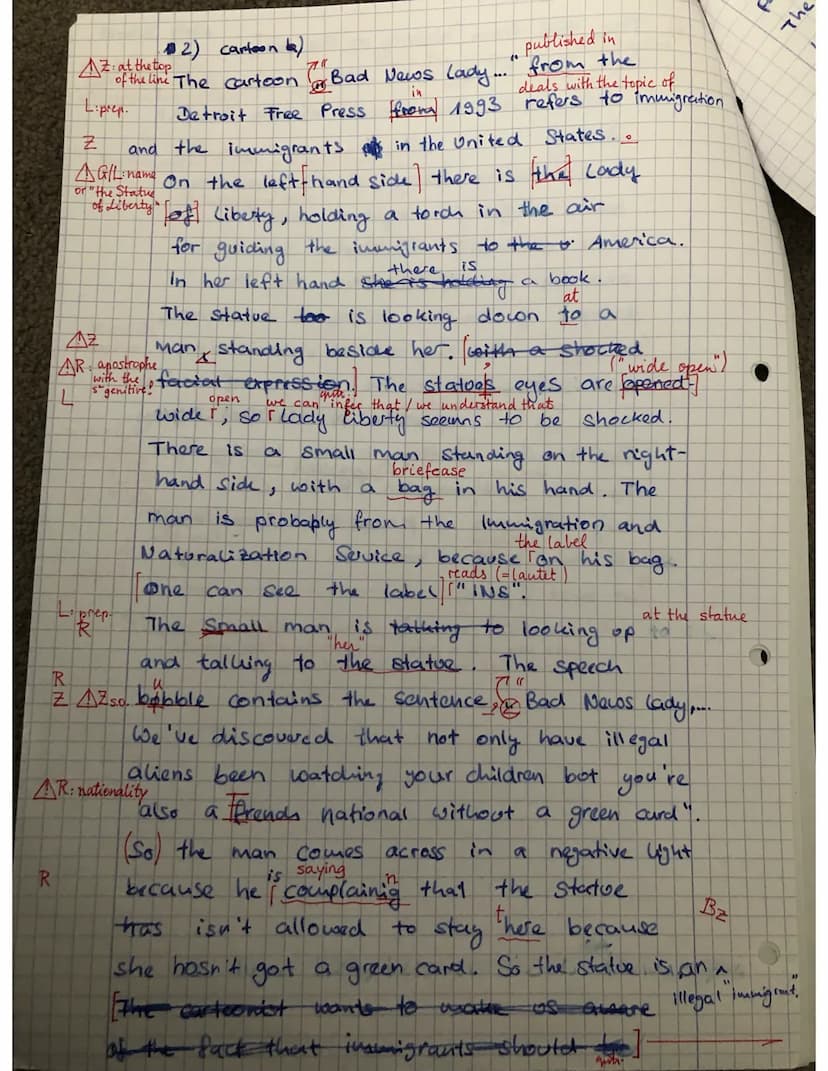 2) cartoon b)
published in
⚠Z: at the top
of the line The cartoon " Bad News Lady..." from the
deals with the topic of
in
L: prep. Detroit Free Press [from] 1993 refers to immigration
Z and the immigrants in the United States.
⚠G/L: name On the left[hand side] there is [the] Lady
or "the Statue
of Liberty" [of] Liberty, holding a torch in the air
for guiding the immigrants to the America.
there is
In her left hand she is holding a book.
at
The statue too is looking down to a
⚠Z man, standing beside her. [with a shocked
("wide open")
⚠R: apostrophe
with the
s-genitive! facial expression.] The statoo's eyes are [opened]
open we can infer that / we understand that
L wide, so Lady Liberty seems to be shocked.
There is a small man standing on the right-
briefcase
hand side, with a bag in his hand. The
man is probaply from the Immigration and
the label
Naturalization Service, because on his bag.
reads (=lautet)
[one can see the label] "INS".
L: prep. at the statue
R The small man is talking to looking op to
"her"
and talking to the statue. The speech
R u
Z ⚠Z so. bobble contains the sentence, " Bad News Lady,...
We've discovered that not only have illegal
aliens been watching your children bot you're
⚠R: nationality
also a french national without a green card".
(So) the man comes across in a negative light
is saying n
R because he complainig that the statue
t Bz
has isn't allowed to stay here because
she hasn't got a green card. So the statue is an
illegal "immigrant".
[The cartoonist wants to make us aware
of the fact that immigrants should be]